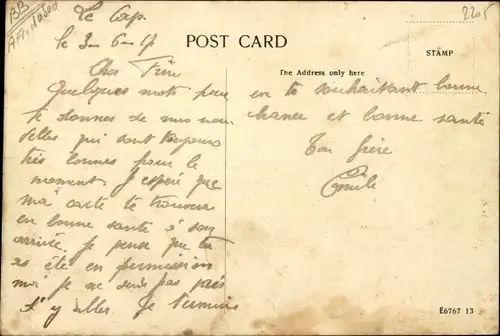 BB
Afr. du Sud
2205
Le Cap.
le 3-6-17
POST CARD
STAMP
The Address only here
Cher Frère
Quelques mots pour
te donner de mes nou
velles qui sont toujours
très bonnes pour le
moment. J'espère que
ma carte te trouvera
en bonne santé à son
arrivée. Je pense que tu
as été en permission
moi je ne suis pas près
d'y aller. Je termine
en te souhaitant bonne
chance et bonne santé
Ton frère
Emile
E6767 13